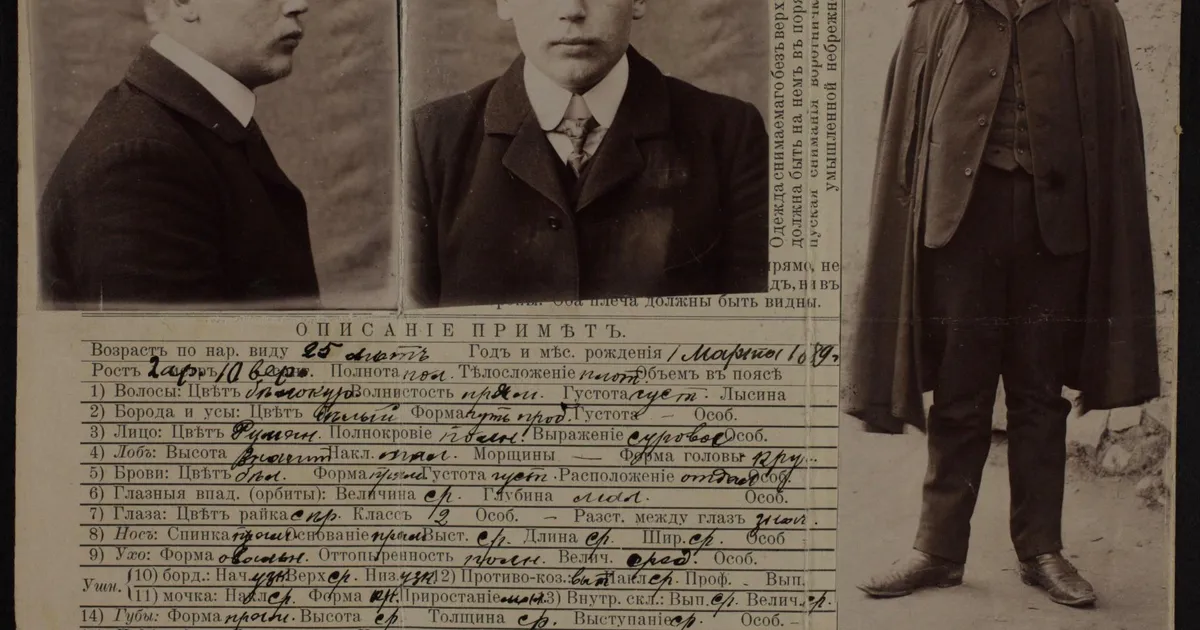 Одежда снимаемаго безъ верх
должна быть на немъ въ поря
пуская снимания воротничк
умышленной небрежн
прямо, не
дъ, ни въ
Оба плеча должны быть видны.
ОПИСАНІЕ ПРИМѢТЪ.
Возрастъ по нар. виду 25 лѣтъ Годъ и мѣс. рожденія 1 Марта 1889г
Ростъ 2 ар. 10 вер. Полнота пол. Тѣлосложеніе плот. Объемъ въ поясѣ
1) Волосы: Цвѣтъ бѣлокур. Волнистость прям. Густота густ. Лысина
2) Борода и усы: Цвѣтъ бѣлый Форма Густота — Особ.
3) Лицо: Цвѣтъ Румян. Полнокровіе полн. Выраженіе суровое Особ.
4) Лобъ: Высота Накл. мал. Морщины — Форма головы кру
5) Брови: Цвѣтъ бѣл. Форма прям. Густота густ. Расположеніе отдал. Особ.
6) Глазныя впад. (орбиты): Величина ср. Глубина мал. Особ.
7) Глаза: Цвѣтъ райка Классъ 2 Особ. — Разст. между глазъ
8) Носъ: Спинка прям. Основаніе прям. Выст. ср. Длина ср. Шир. ср. Особ
9) Ухо: Форма овальн. Оттопыренность полн. Велич. сред. Особ.
Ушн. (10) борд.: Нач. узк. Верх ср. Низ. узк. 12) Противо-коз.: Накл. ср. Проф. - Вып.
(11) мочка: Накл. ср. Форма кр. Приростаніе 13) Внутр. скл.: Вып. ср. Велич. ср.
14) Губы: Форма прям. Высота ср. Толщина ср. Выступаніе ср. Особ. —